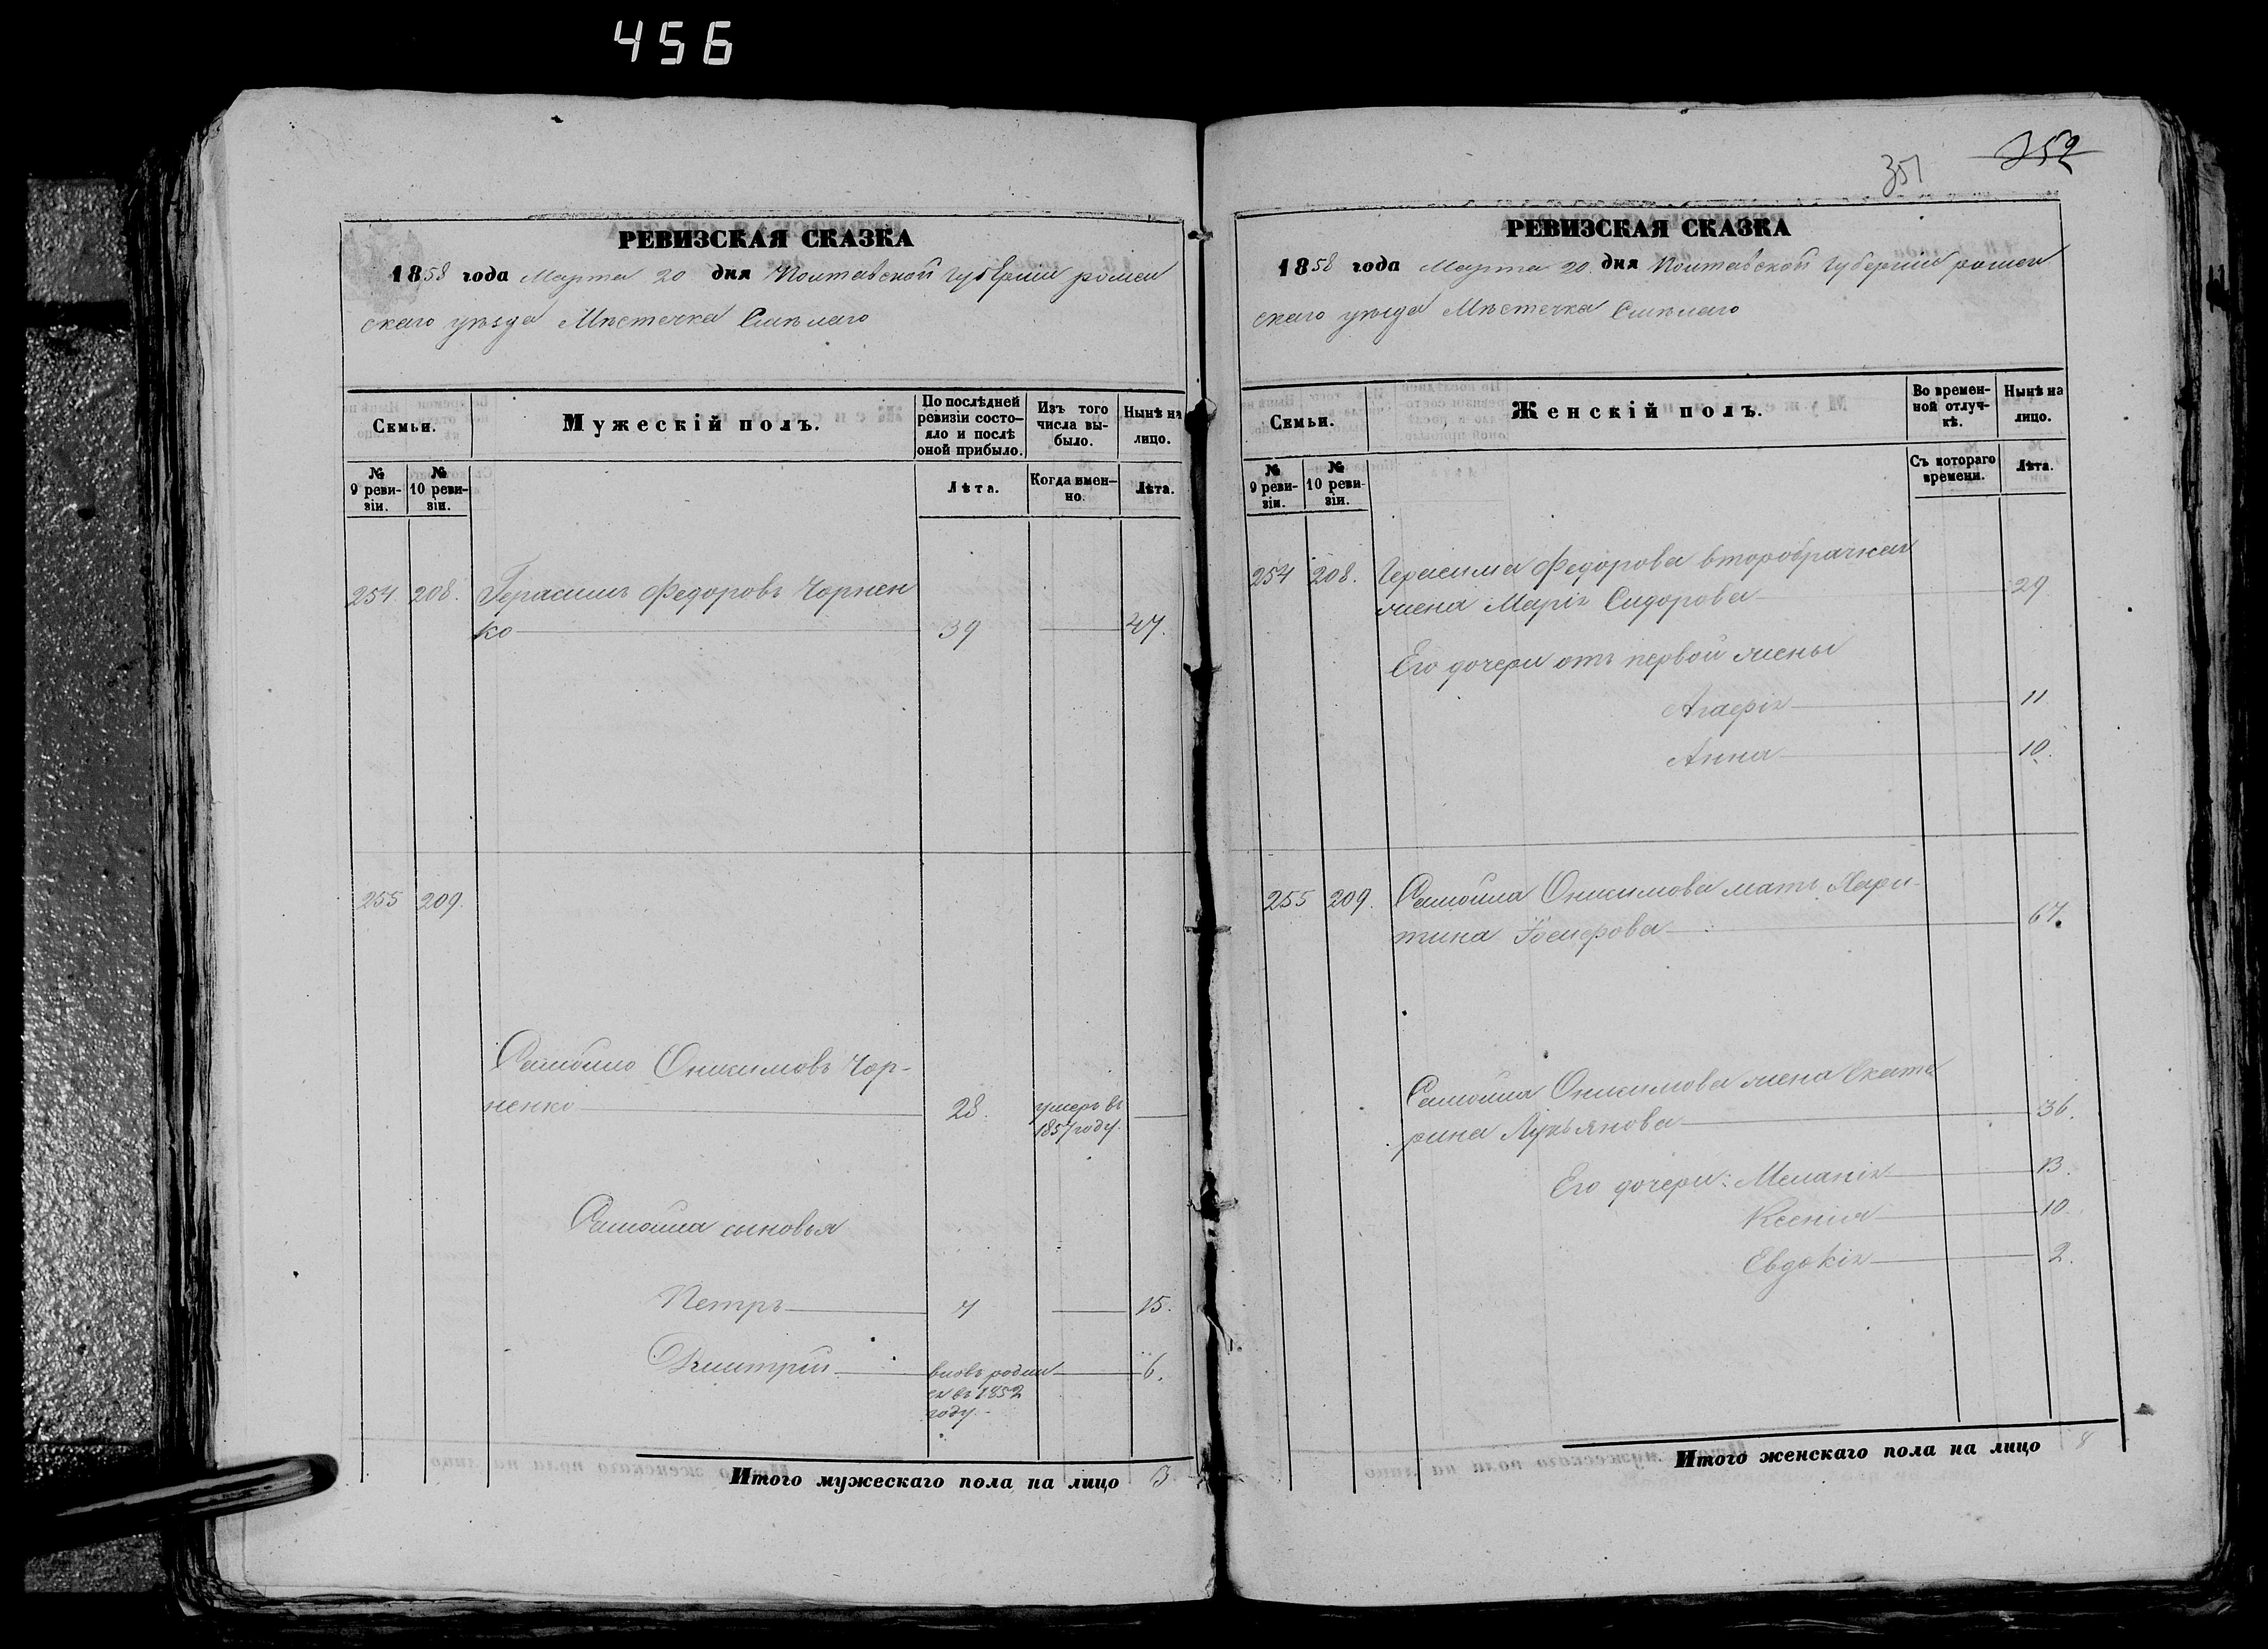 456
РЕВИЗСКАЯ СКАЗКА
1858 года Марта 20 дня Полтавской Губерніи ромен
скаго уѣзда Мѣстечка Смѣлаго
Семьи.
Мужескій полъ.
По послѣдней ревизіи состо-
яло и послѣ оной прибыло.
Изъ того числа вы-
было.
Нынѣ на лицо.
№ 9 реви-
зіи.
№ 10 реви-
зіи.
Лѣта.
Когда имен-
но.
Лѣта.
254 208. Герасимъ Федоровъ Чорнен
ко 39 47.
255 209.
Самойло Онисимовъ Чор-
ненко 28. умеръ въ
1857 году.
Самойла сыновья
Петръ 7 15.
Дмитрій вновь родил 6.
ся въ 1852
году.
Итого мужескаго пола на лицо 3
351 352
РЕВИЗСКАЯ СКАЗКА
1858 года Марта 20. дня Полтавской Губерніи ромен
скаго уѣзда Мѣстечка Смѣлаго
Семьи.
Женскій полъ.
Во времен-
ной отлуч-
кѣ.
Нынѣ на лицо.
№ 9 реви-
зіи.
№ 10 реви-
зіи.
Съ котораго времени.
Лѣта.
254 208. Герасима Федорова второбрачная
жена Марія Сидорова 29
Его дочери отъ первой жены
Агафія 11
Анна 10.
255 209. Самойла Онисимова мать Хари-
тина Іосифова 67.
Самойла Онисимова жена Екате
рина Лукьянова 36.
Его дочери: Меланія 13.
Ксенія 10.
Евдокія 2.
Итого женскаго пола на лицо 8